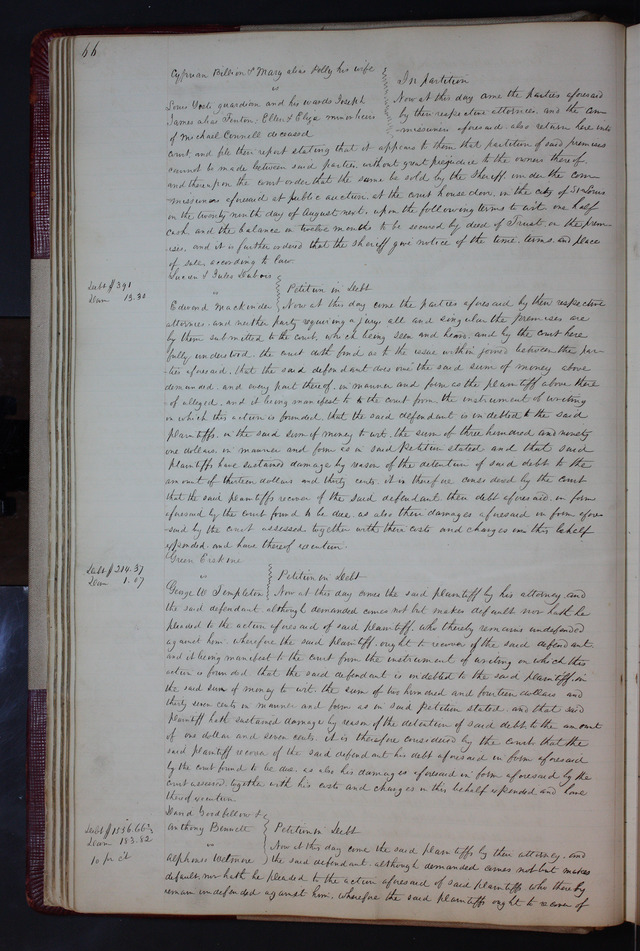 66
Cyprian Billion & Mary alias Polly his wife
vs
Louis Yosti guardian and his wards Joseph
James alias Fenton, Ellen & Eliza minor heirs
of Michael Connell deceased
In partition
Now at this day came the parties aforesaid
by their respective attornies, and the com
missioners aforesaid also return here into
court, and file their report stating that it appears to them that partition of said premises
cannot be made between said parties without great prejudice to the owners thereof.
and thereupon the court order that the same be sold by the sheriff under the com
missioners aforesaid at public auction at the court house door, in the city of St Louis
on the twenty ninth day of August next, upon the following terms to wit one half
cash and the balance in twelve months to be secured by deed of Trust on the prem
ises, and it is further ordered that the sheriff give notice of the time, terms, and place
of sale, according to law
Debt $391
Dam 13.30
Lucien & Jules Dubois
vs
Edmond Mackinder
Petition in Debt
Now at this day come the parties aforesaid by their respective
attornies, and neither party requiring a jury all and singular the premises are
by them submitted to the court, which being seen and heard, and by the court here
fully understood, the court doth find as to the issue within joined between the par
ties aforesaid, that the said defendant does owe the said sum of money above
demanded, and every part thereof, in manner and form as the plaintiff above there
of alleged, and it being manifest to the court from the instrument of writing
on which this action is founded, that the said defendant is indebted to the said
plaintiffs, in the said sum of money to wit, the sum of three hundred and ninety
one dollars, in manner and form as in said Petition stated and that said
plaintiffs have sustained damage by reason of the detention of said debt to the
amount of thirteen dollars and thirty cents, it is therefore considered by the court
that the said plaintiffs recover of the said defendant their debt aforesaid, in form
aforesaid by the court found to be due, as also their damages aforesaid in form afore
said by the court assessed together with their costs and charges in this behalf
expended, and have thereof execution.
Debt $214.37
Dam 1.07
Green Erskine
vs
George W Templeton
Petition in Debt
Now at this day comes the said plaintiff by his attorney, and
the said defendant although demanded comes not but makes default, nor hath he
pleaded to the action aforesaid of said plaintiff, who thereby remains undefended
against him, wherefore the said plaintiff ought to recover of the said defendant
and it being manifest to the court from the instrument of writing on which this
action is founded that the said defendant is indebted to the said plaintiff, in
the said sum of money to wit, the sum of two hundred and fourteen dollars and
thirty seven cents in manner and form as in said Petition stated, and that said
plaintiff hath sustained damage by reason of the detention of said debt to the amount
of one dollar and seven cents, it is therefore considered by the court that the
said plaintiff recover of the said defendant his debt aforesaid in form aforesaid
by the court found to be due, as also his damages aforesaid in form aforesaid by the
court assessed, together with his costs and charges in this behalf expended and have
thereof execution
Dam 183.82
10 pr ct
David Goodfellow &
Anthony Bennett
vs
Alphonso
Petition in Debt
Now at this day come the said plaintiffs by their attorney, and
the said defendant although demanded comes not but makes
default, nor hath he pleaded to the action aforesaid of said plaintiffs who thereby
remain undefended against him, wherefore the said plaintiffs ought to recover of